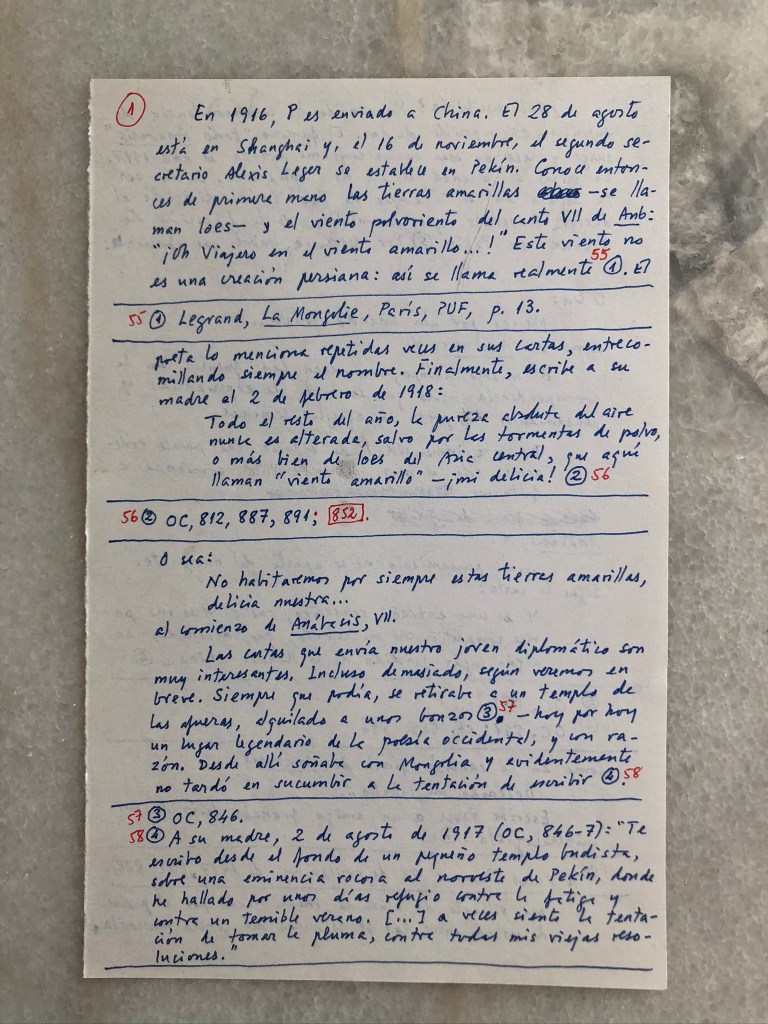 ① En 1916, P es enviado a China. El 28 de agosto
está en Shanghai y, el 16 de noviembre, el segundo se-
cretario Alexis Leger se establece en Pekín. Conoce enton-
ces de primera mano las tierras amarillas —se lla-
man loes— y el viento polvoriento del canto VII de Anb:
"¡Oh Viajero en el viento amarillo...!" Este viento no
es una creación persiana: así se llama realmente 55 ①. El
55 ① Legrand, La Mongolie, París, PUF, p. 13.
poeta lo menciona repetidas veces en sus cartas, entreco-
millando siempre el nombre. Finalmente, escribe a su
madre al 2 de febrero de 1918:
Todo el resto del año, la pureza absoluta del aire
nunca es alterada, salvo por las tormentas de polvo,
o más bien de loes del Asia central, que aquí
llaman "viento amarillo" —¡mi delicia! ② 56
56 ② OC, 812, 887, 891; 852.
O sea:
No habitaremos por siempre estas tierras amarillas,
delicia nuestra...
al comienzo de Anábasis, VII.
Las cartas que envía nuestro joven diplomático son
muy interesantes. Incluso demasiado, según veremos en
breve. Siempre que podía, se retiraba a un templo de
las afueras, alquilado a unos bonzos ③ 57 —hoy por hoy
un lugar legendario de la poesía occidental, y con ra-
zón. Desde allí soñaba con Mongolia y evidentemente
no tardó en sucumbir a la tentación de escribir ④. 58
57 ③ OC, 846.
58 ④ A su madre, 2 de agosto de 1917 (OC, 846-7): "Te
escribo desde el fondo de un pequeño templo budista,
sobre una eminencia rocosa al noroeste de Pekín, donde
he hallado por unos días refugio contra la fatiga y
contra un temible verano. [...] a veces siento la tenta-
ción de tomar la pluma, contra todas mis viejas reso-
luciones."